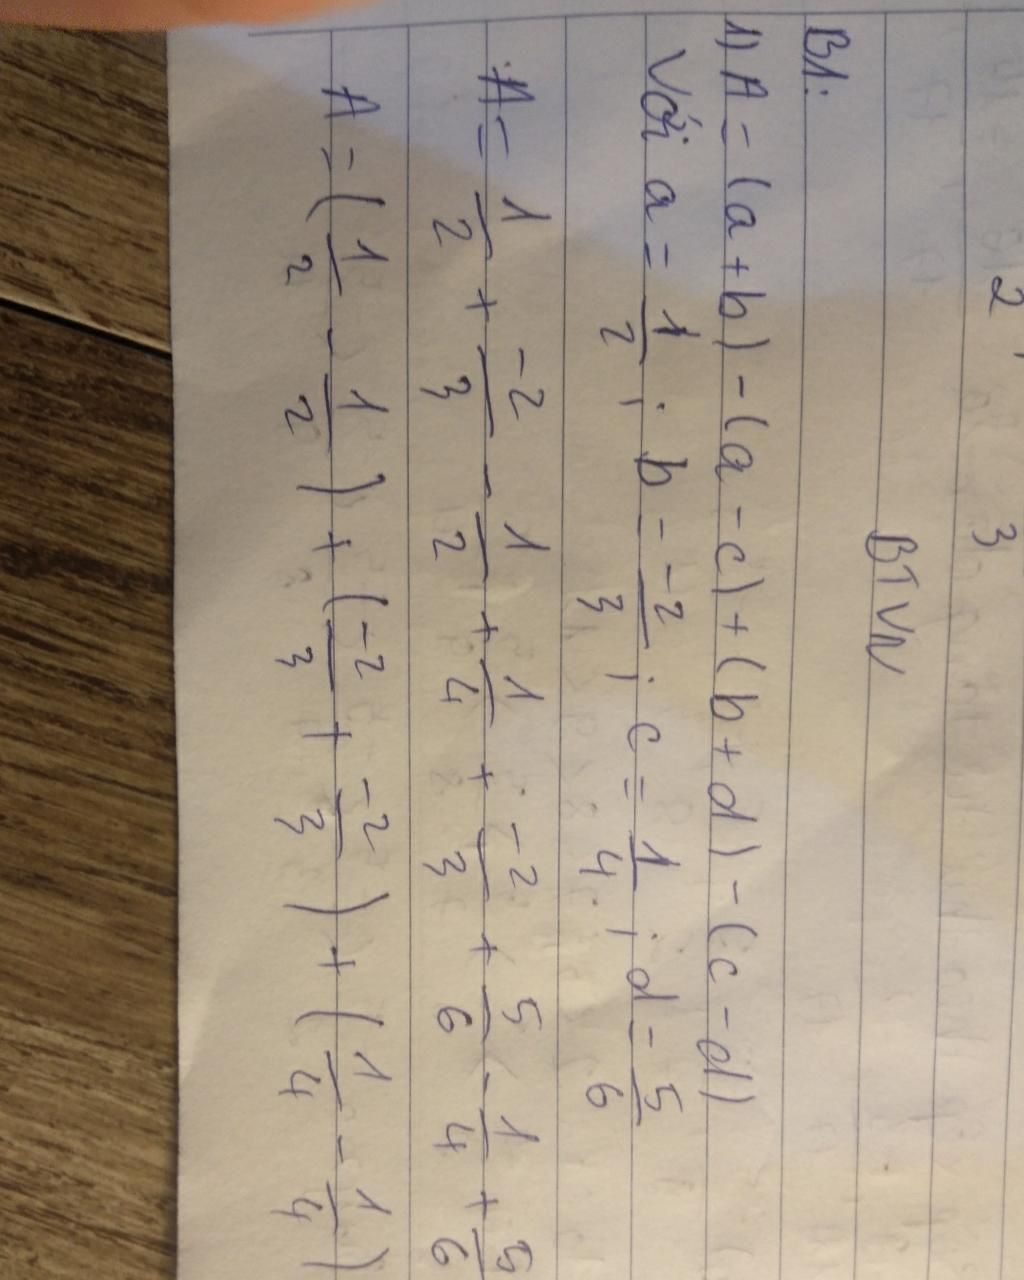 2 3
BTVN
B1:
1) A = (a+b) - (a-c) + (b+d) - (c-d)
Với a = 1/2 ; b = -2/3 ; c = 1/4 ; d = 5/6
A = 1/2 + -2/3 - 1/2 + 1/4 + -2/3 + 5/6 - 1/4 + 5/6
A = (1/2 - 1/2) + (-2/3 + -2/3) + (1/4 - 1/4)